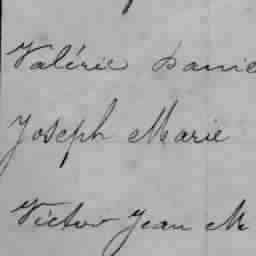 Valérie Danie
Joseph Marie
Victor Jean M